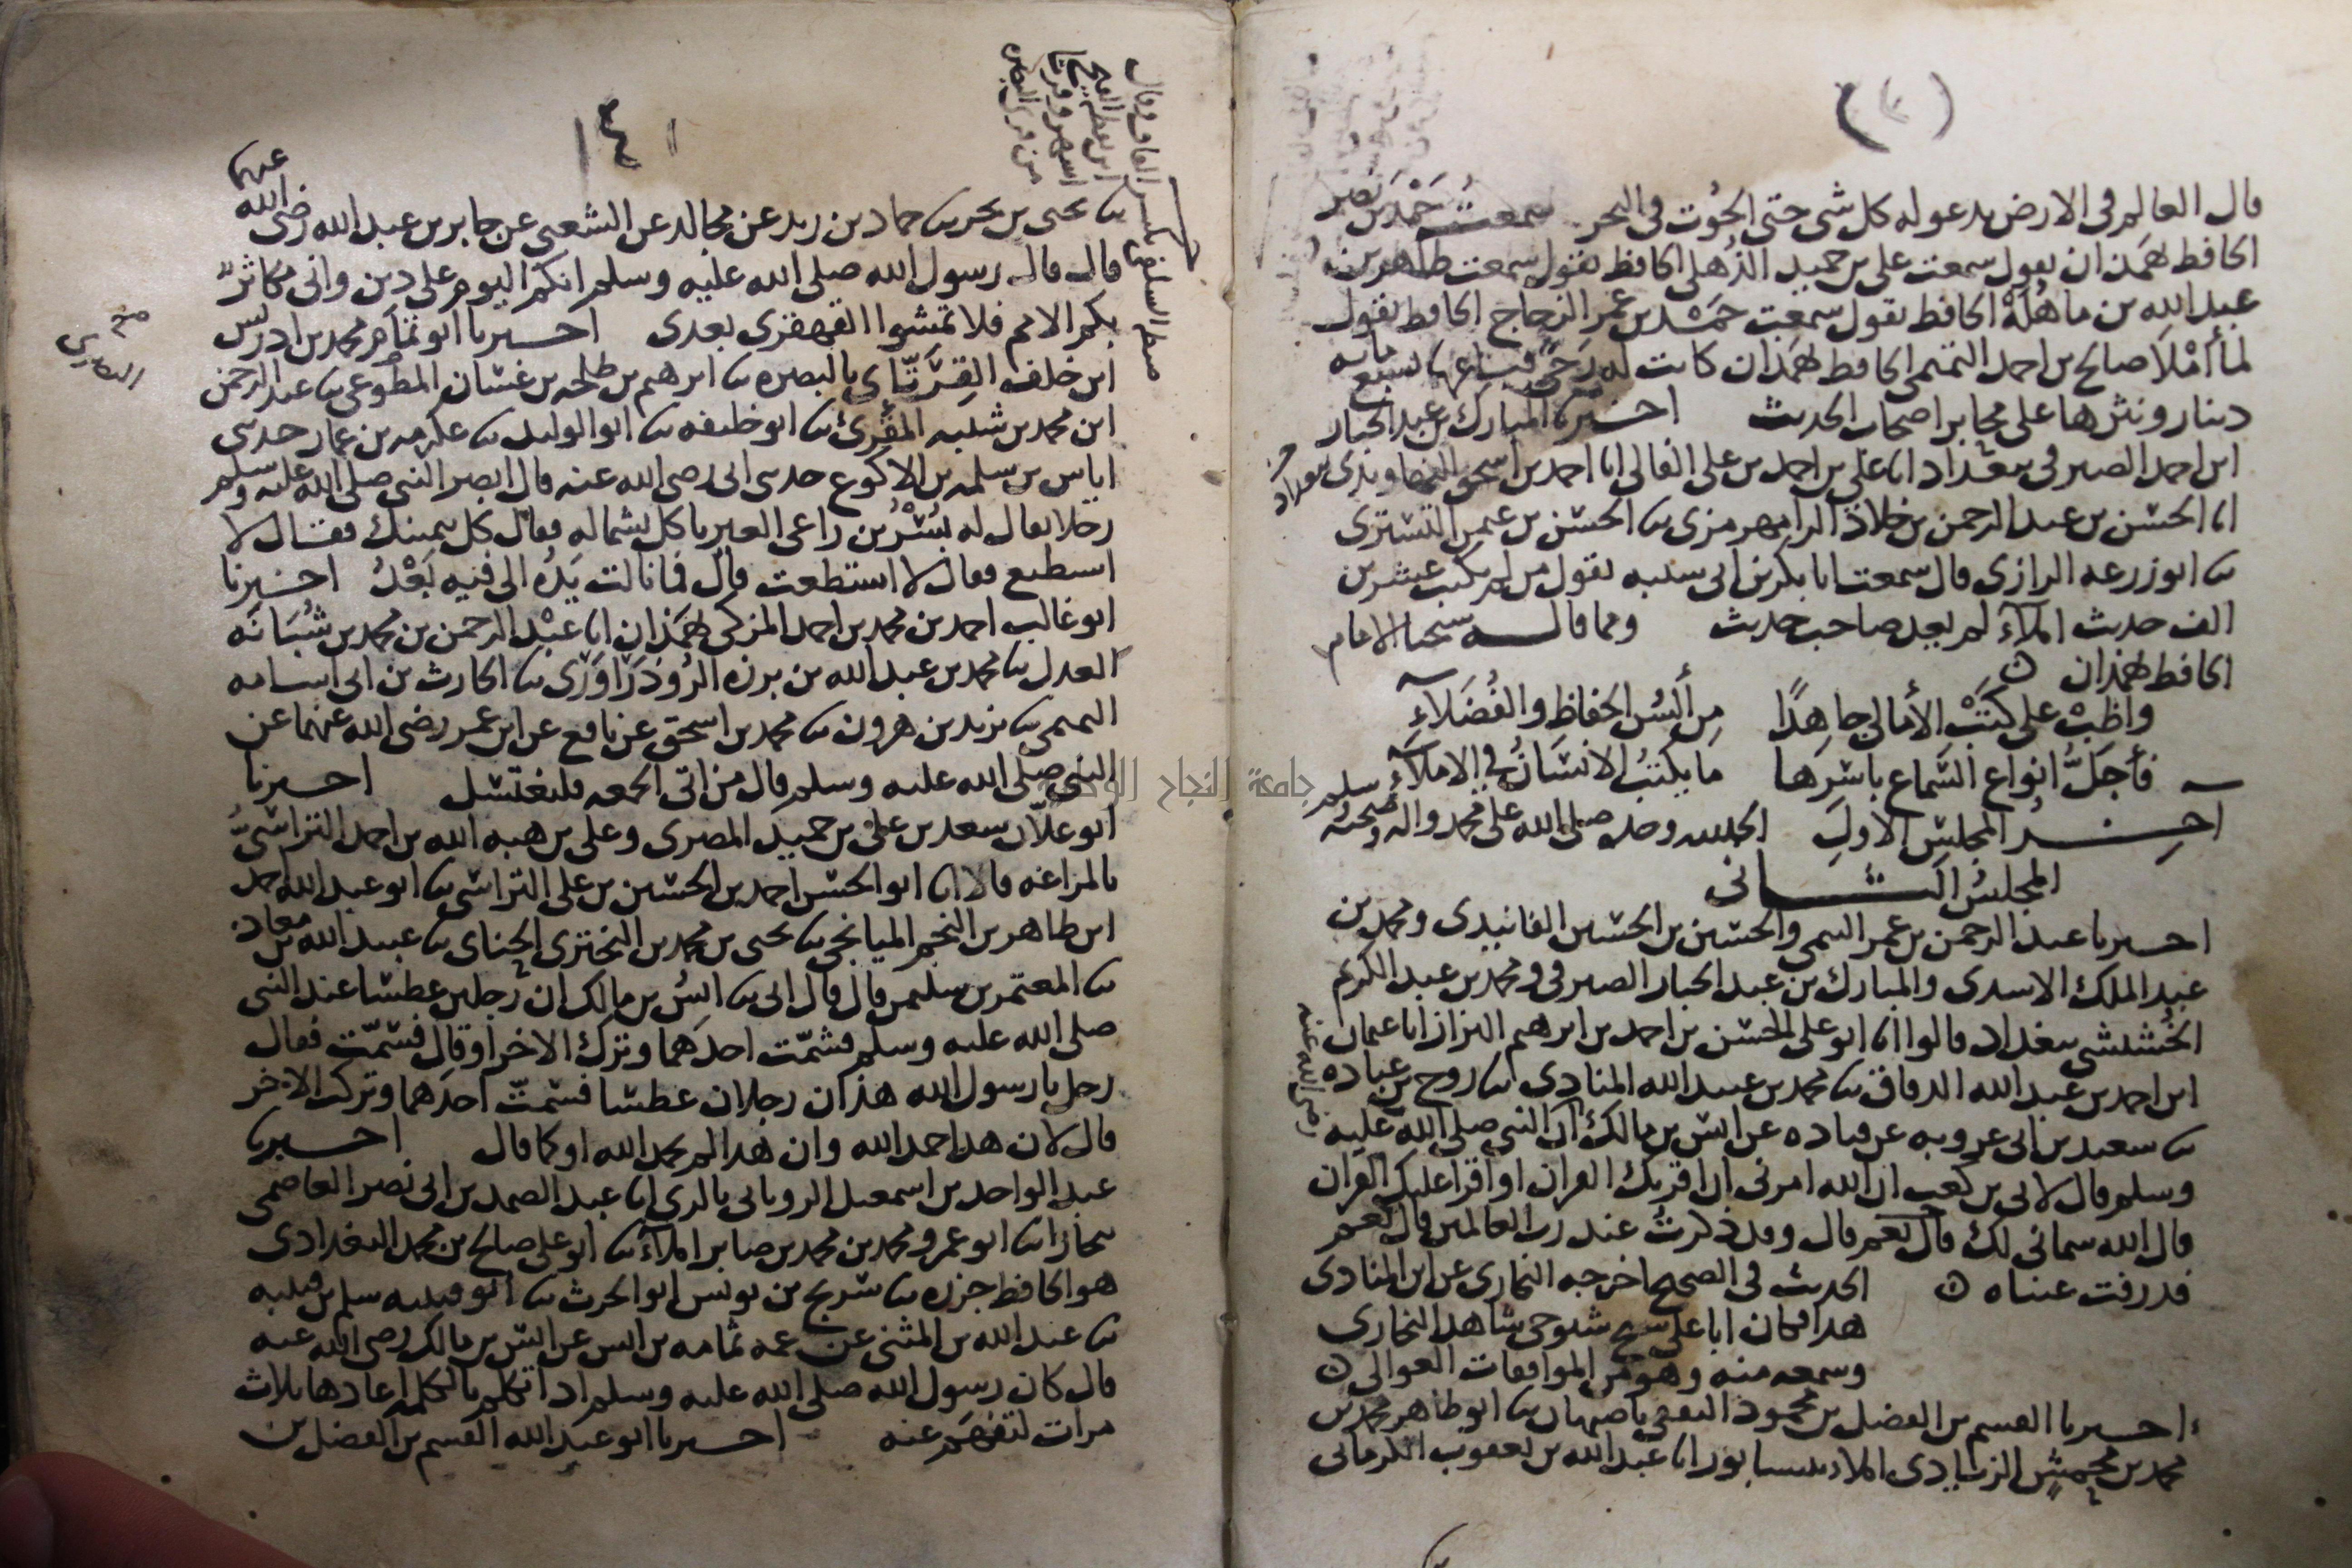 (٣)
قال العالم في الارض يدعو له كل شي حتى الحوت في البحر سمعت حمد بن نصر
الحافظ بهمذان يقول سمعت علي بن حميد الذهلي الحافظ يقول سمعت طاهر بن
عبد الله بن ماهلة الحافظ يقول سمعت حمد بن عمر الزجاج الحافظ يقول
لما أملا صالح بن احمد التميمي الحافظ بهمذان كانت له رحى فباعها بسبع مايه
دينار ونثرها على محابر اصحاب الحديث اخبرنا المبارك بن عبد الجبار
ابن احمد الصيرفي ببغداد انا علي بن احمد بن علي الفالي انا احمد بن اسحق النهاوندي
انا الحسن بن عبد الرحمن بن خلاد الرامهرمزي نا الحسن بن عمر التستري
نا ابو زرعه الرازي قال سمعت ابا بكر بن ابي شيبه يقول من لم يكتب عشرين
الف حديث املاء لم يعد صاحب حديث ومما قاله شيخنا الامام
الحافظ بهمذان
واظب على كتب الأمالي جاهدا من ألسن الحفاظ والفضلاء
فأجل انواع السماع باسرها ما يكتب الانسان في الاملاء
آخر المجلس الاول الحمد لله وحده صلى الله على محمد واله وصحبه وسلم
المجلس الثاني
اخبرنا عبد الرحمن بن عمر السمي والحسين بن الحسين الفانيدي ومحمد بن
عبد الملك الاسدي والمبارك بن عبد الجبار الصيرفي ومحمد بن عبد الكريم
الخشيشي ببغداد قالوا انا ابو علي الحسن بن احمد بن ابرهيم البزاز انا عثمان
ابن احمد بن عبد الله الدقاق نا محمد بن عبيد الله المنادي نا روح بن عباده
نا سعيد بن ابي عروبه عن قتاده عن انس بن مالك ان النبي صلى الله عليه
رضي الله عنه
وسلم قال لابي بن كعب ان الله امرني ان اقريك القران او اقرا عليك القران
قال الله سماني لك قال نعم قال وقد ذكرت عند رب العالمين قال نعم
فذرفت عيناه الحديث في الصحيح اخرجه البخاري عن ابن المنادي
هذا فكان ابا علي شيخ شيوخي شاهد البخاري
وسمعه منه وهو من الموافقات العوالي
اخبرنا القسم بن الفضل بن محمود الثقفي باصبهان نا ابو طاهر محمد بن
محمد بن محمش الزيادي املاء بنيسابور انا عبد الله بن يعقوب الكرماني
نا يحيى بن بحر نا حماد بن زيد عن مجالد عن الشعبي عن جابر بن عبد الله رضي الله عنهما
قال قال رسول الله صلى الله عليه وسلم انكم اليوم على دين واني مكاثر
بكم الامم فلا تمشوا القهقرى بعدي اخبرنا ابو تمام محمد بن ادريس
ابن خلف القرتاي بالبصره نا ابرهيم بن طلحه بن غسان المطوعي نا عبد الرحمن
ابن محمد بن شيبه المقرئ نا ابو خليفه نا ابو الوليد نا عكرمه بن عمار حدثني
اياس بن سلمه بن الاكوع حدثني ابي رضي الله عنه قال ابصر النبي صلى الله عليه وسلم
رجلا يقال له بسر بن راعي العير ياكل بشماله فقال كل بيمينك فقال لا
استطيع فقال لا استطعت قال فما نالت يده الى فيه بعد اخبرنا
ابو غالب احمد بن محمد بن احمد المزكي بهمذان انا عبد الرحمن بن محمد بن شبانه
العدل نا محمد بن عبد الله بن برزه الروذراوري نا الحارث بن ابي اسامه
التميمي نا يزيد بن هرون نا محمد بن اسحق عن نافع عن ابن عمر رضي الله عنهما عن
النبي صلى الله عليه وسلم قال من اتى الجمعه فليغتسل اخبرنا
ابو علان سعد بن علي بن حميد المصري وعلي بن هبه الله بن احمد التراسي
بالمراغه قالا انا ابو الحسن احمد بن الحسين بن علي التراسي نا ابو عبد الله احمد
ابن طاهر بن النجم الميانجي نا يحيى بن محمد بن البختري الحناي نا عبيد الله بن معاذ
نا المعتمر بن سليمن قال قال ابي نا انس بن مالك ان رجلين عطسا عند النبي
صلى الله عليه وسلم فشمت احدهما وترك الاخر او قال فسمت فقال
رجل يا رسول الله هذان رجلان عطسا فشمت احدهما وتركت الاخر
قال لان هذا حمد الله وان هذا لم يحمد الله او كما قال اخبرنا
عبد الواحد بن اسمعيل الروياني بالري انا عبد الصمد بن ابي نصر العاصمي
ببخارا نا ابو عمرو محمد بن محمد بن صابر املاء نا ابو علي صالح بن محمد البغدادي
هو الحافظ جزره نا سريج بن يونس ابو الحرث نا ابو قتيبه سلم بن قتيبه
نا عبد الله بن المثنى عن عمه ثمامه بن انس عن انس بن مالك رضي الله عنه
قال كان رسول الله صلى الله عليه وسلم اذا تكلم بالكلمه اعادها ثلاث
مرات لتفهم عنه اخبرنا ابو عبد الله القسم بن الفضل بن
جامعة النجاح الوطنية